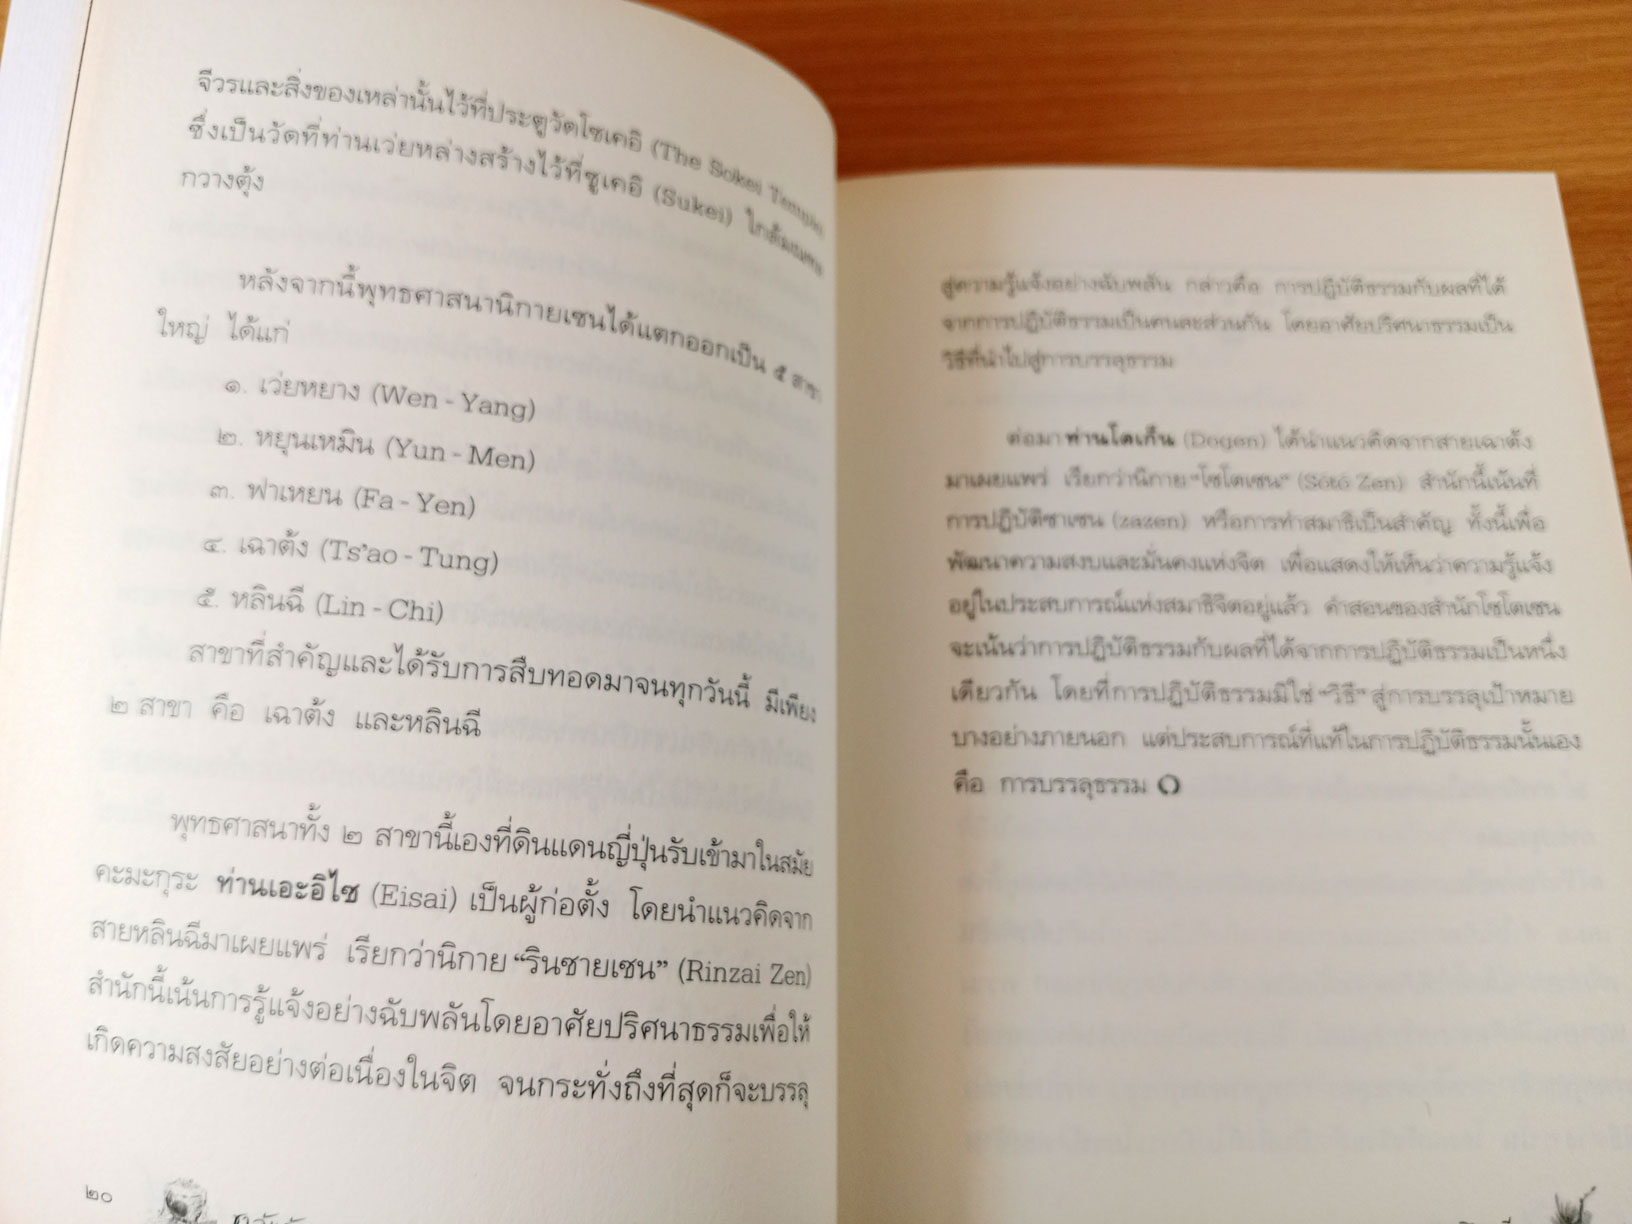 จีวรและสิ่งของเหล่านั้นไว้ที่ประตูวัดโซเคอิ (The Sokei Temple)
ซึ่งเป็นวัดที่ท่านเว่ยหล่างสร้างไว้ที่ซูเคอิ (Sukei) ใกล้มณฑล
กวางตุ้ง
หลังจากนี้พุทธศาสนานิกายเซนได้แตกออกเป็น ๕ สาขา
ใหญ่ ได้แก่
๑. เว่ยหยาง (Wen - Yang)
๒. หยุนเหมิน (Yun - Men)
๓. ฟาเหยน (Fa - Yen)
๔. เฉาต้ง (Ts'ao - Tung)
๕. หลินฉี (Lin - Chi)
สาขาที่สำคัญและได้รับการสืบทอดมาจนทุกวันนี้ มีเพียง
๒ สาขา คือ เฉาต้ง และหลินฉี
พุทธศาสนาทั้ง ๒ สาขานี้เองที่ดินแดนญี่ปุ่นรับเข้ามาในสมัย
คะมะกุระ ท่านเอะอิไซ (Eisai) เป็นผู้ก่อตั้ง โดยนำแนวคิดจาก
สายหลินฉีมาเผยแพร่ เรียกว่านิกาย “รินซายเซน” (Rinzai Zen)
สำนักนี้เน้นการรู้แจ้งอย่างฉับพลันโดยอาศัยปริศนาธรรมเพื่อให้
เกิดความสงสัยอย่างต่อเนื่องในจิต จนกระทั่งถึงที่สุดก็จะบรรลุ
๒๐
สู่ความรู้แจ้งอย่างฉับพลัน กล่าวคือ การปฏิบัติธรรมกับผลที่ได้
จากการปฏิบัติธรรมเป็นคนละส่วนกัน โดยอาศัยปริศนาธรรมเป็น
วิธีที่นำไปสู่การบรรลุธรรม
ต่อมา ท่านโดเก็น (Dogen) ได้นำแนวคิดจากสายเฉาต้ง
มาเผยแพร่ เรียกว่านิกาย “โซโตเซน” (Sōtō Zen) สำนักนี้เน้นที่
การปฏิบัติซาเซน (zazen) หรือการทำสมาธิเป็นสำคัญ ทั้งนี้เพื่อ
พัฒนาความสงบและมั่นคงแห่งจิต เพื่อแสดงให้เห็นว่าความรู้แจ้ง
อยู่ในประสบการณ์แห่งสมาธิจิตอยู่แล้ว คำสอนของสำนักโซโตเซน
จะเน้นว่าการปฏิบัติธรรมกับผลที่ได้จากการปฏิบัติธรรมเป็นหนึ่ง
เดียวกัน โดยที่การปฏิบัติธรรมมิใช่ “วิธี” สู่การบรรลุเป้าหมาย
บางอย่างภายนอก แต่ประสบการณ์ที่แท้ในการปฏิบัติธรรมนั้นเอง
คือ การบรรลุธรรม